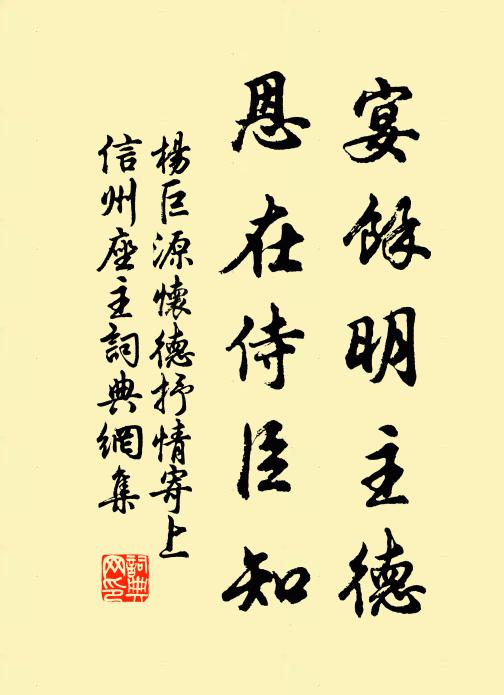 宴餘明主德
恩在侍臣知
楊巨源懷德抒情寄上
信州座主詞典網集
詞典网印